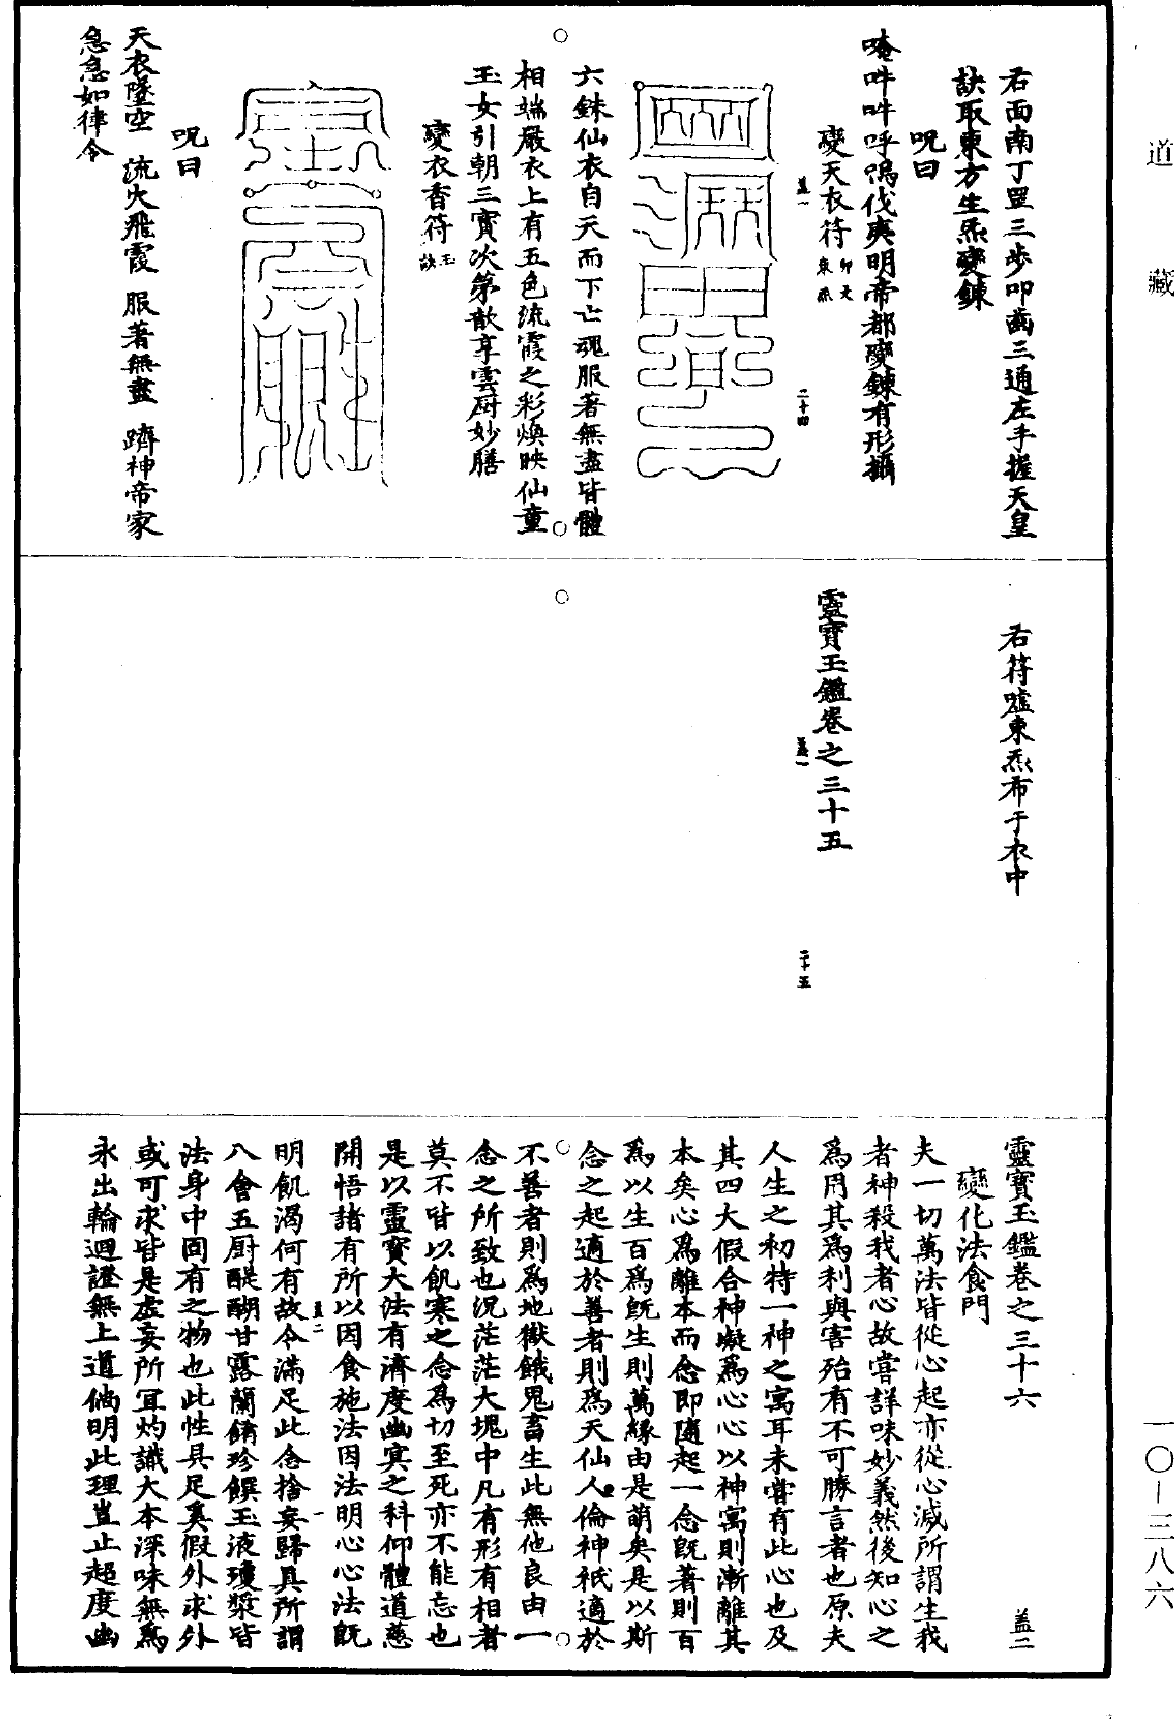 道藏
右面南丁罡三步叩齒三通左手握天皇
訣取東方生炁變鍊
呪曰
唵吽吽呼嗚伐㢲明帝都變鍊有形攝
變天衣符
蓋一
二十四
六銖仙衣自天而下亡魂服著無盡皆體
相端嚴衣上有五色流霞之彩煥映仙童
玉女引朝三寳次第歆享雲厨妙膳
變衣香符玉訣
呪曰
天衣墜空 流火飛霞 服著無盡 躋神帝家
急急如律令
右符噓東炁布于衣中
靈寳玉鑑卷之三十五
蓋一
二十五
靈寳玉鑑卷之三十六
蓋二
變化法食門
夫一切萬法皆從心起亦從心滅所謂生我
者神殺我者心故嘗詳味妙義然後知心之
爲用其爲利與害殆有不可勝言者也原夫
人生之初特一神之寓耳未嘗有此心也及
其四大假合神凝爲心心以神寓則漸離其
本矣心爲離本而念即隨起一念旣著則百
爲以生百爲旣生則萬緣由是萌矣是以斯
念之起適於善者則爲天仙人倫神祇適於
不善者則爲地獄餓鬼畜生此無他良由一
念之所致也況茫茫大塊中凡有形有相者
莫不皆以飢寒之念爲切至死亦不能忘也
是以靈寳大法有濟度幽冥之科仰體道慈
開悟諸有所以因食施法因法明心心法旣
蓋二
一
明飢渴何有故令滿足此念捨妄歸真所謂
八會五厨醍醐甘露蘭餚珍饌玉液瓊漿皆
法身中固有之物也此性具足奚假外求外
或可求皆是虛妄所冝灼識大本深味無爲
永出輪迴證無上道倘明此理豈止超度幽
一〇—三八六